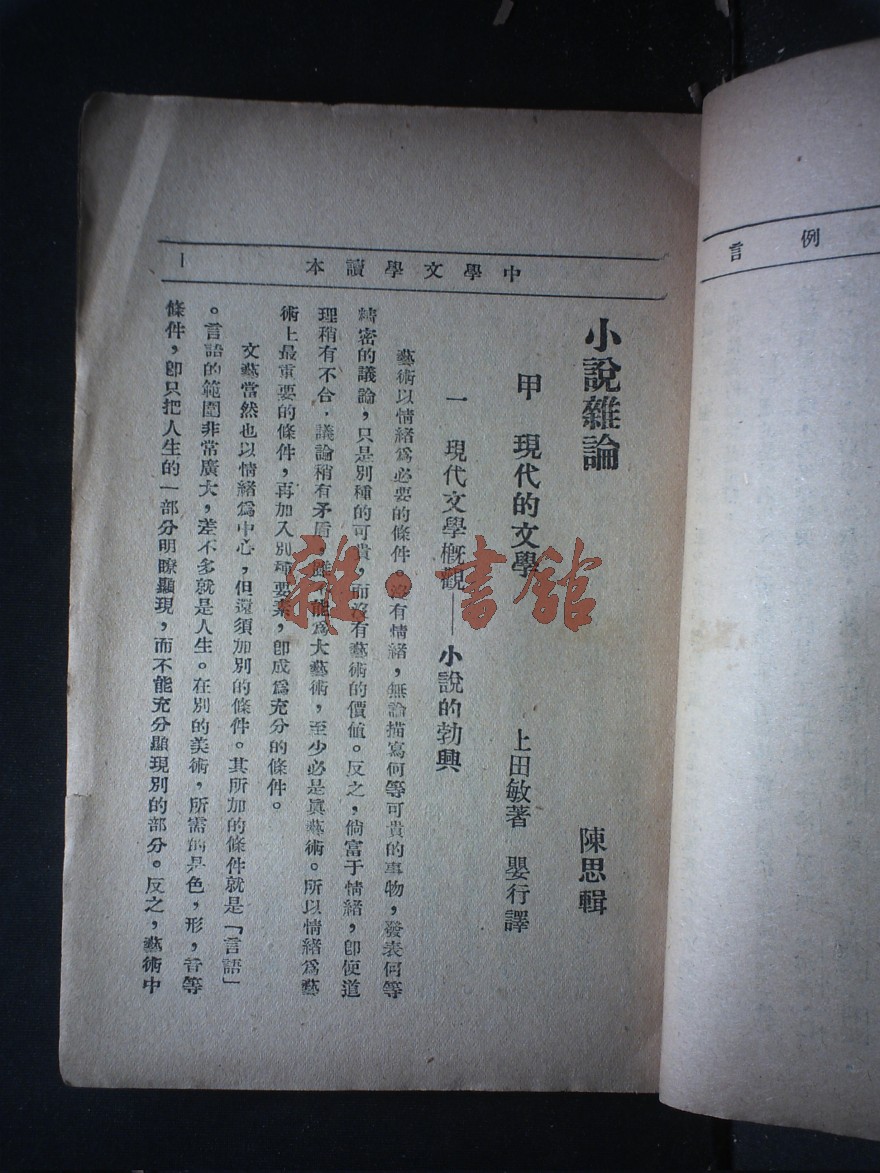 例言
中學文學讀本
一
小說雜論
陳思輯
甲 現代的文學
上田敏著 嬰行譯
一 現代文學概觀——小說的勃興
藝術以情緒爲必要的條件。沒有情緒,無論描寫何等可貴的事物,發表何等
精密的議論,只是別種的可貴,而沒有藝術的價值。反之,倘富于情緒,卽使道
理稍有不合,議論稍有矛盾,能爲大藝術,至少必是眞藝術。所以情緒爲藝
術上最重要的條件,再加入別種要素,卽成爲充分的條件。
文藝當然也以情緒爲中心,但還須加別的條件。其所加的條件就是「言語」
。言語的範圍非常廣大,差不多就是人生。在別的美術,所需的是色,形,音等
條件,卽只把人生的一部分明瞭顯現,而不能充分顯現別的部分。反之,藝術中
雜·書館